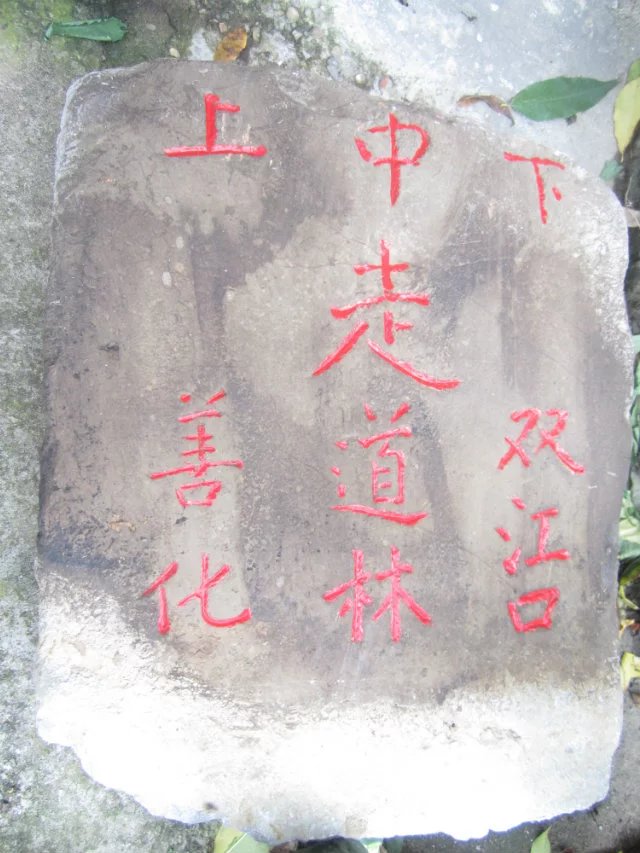 下双江口
中走道林
上善化